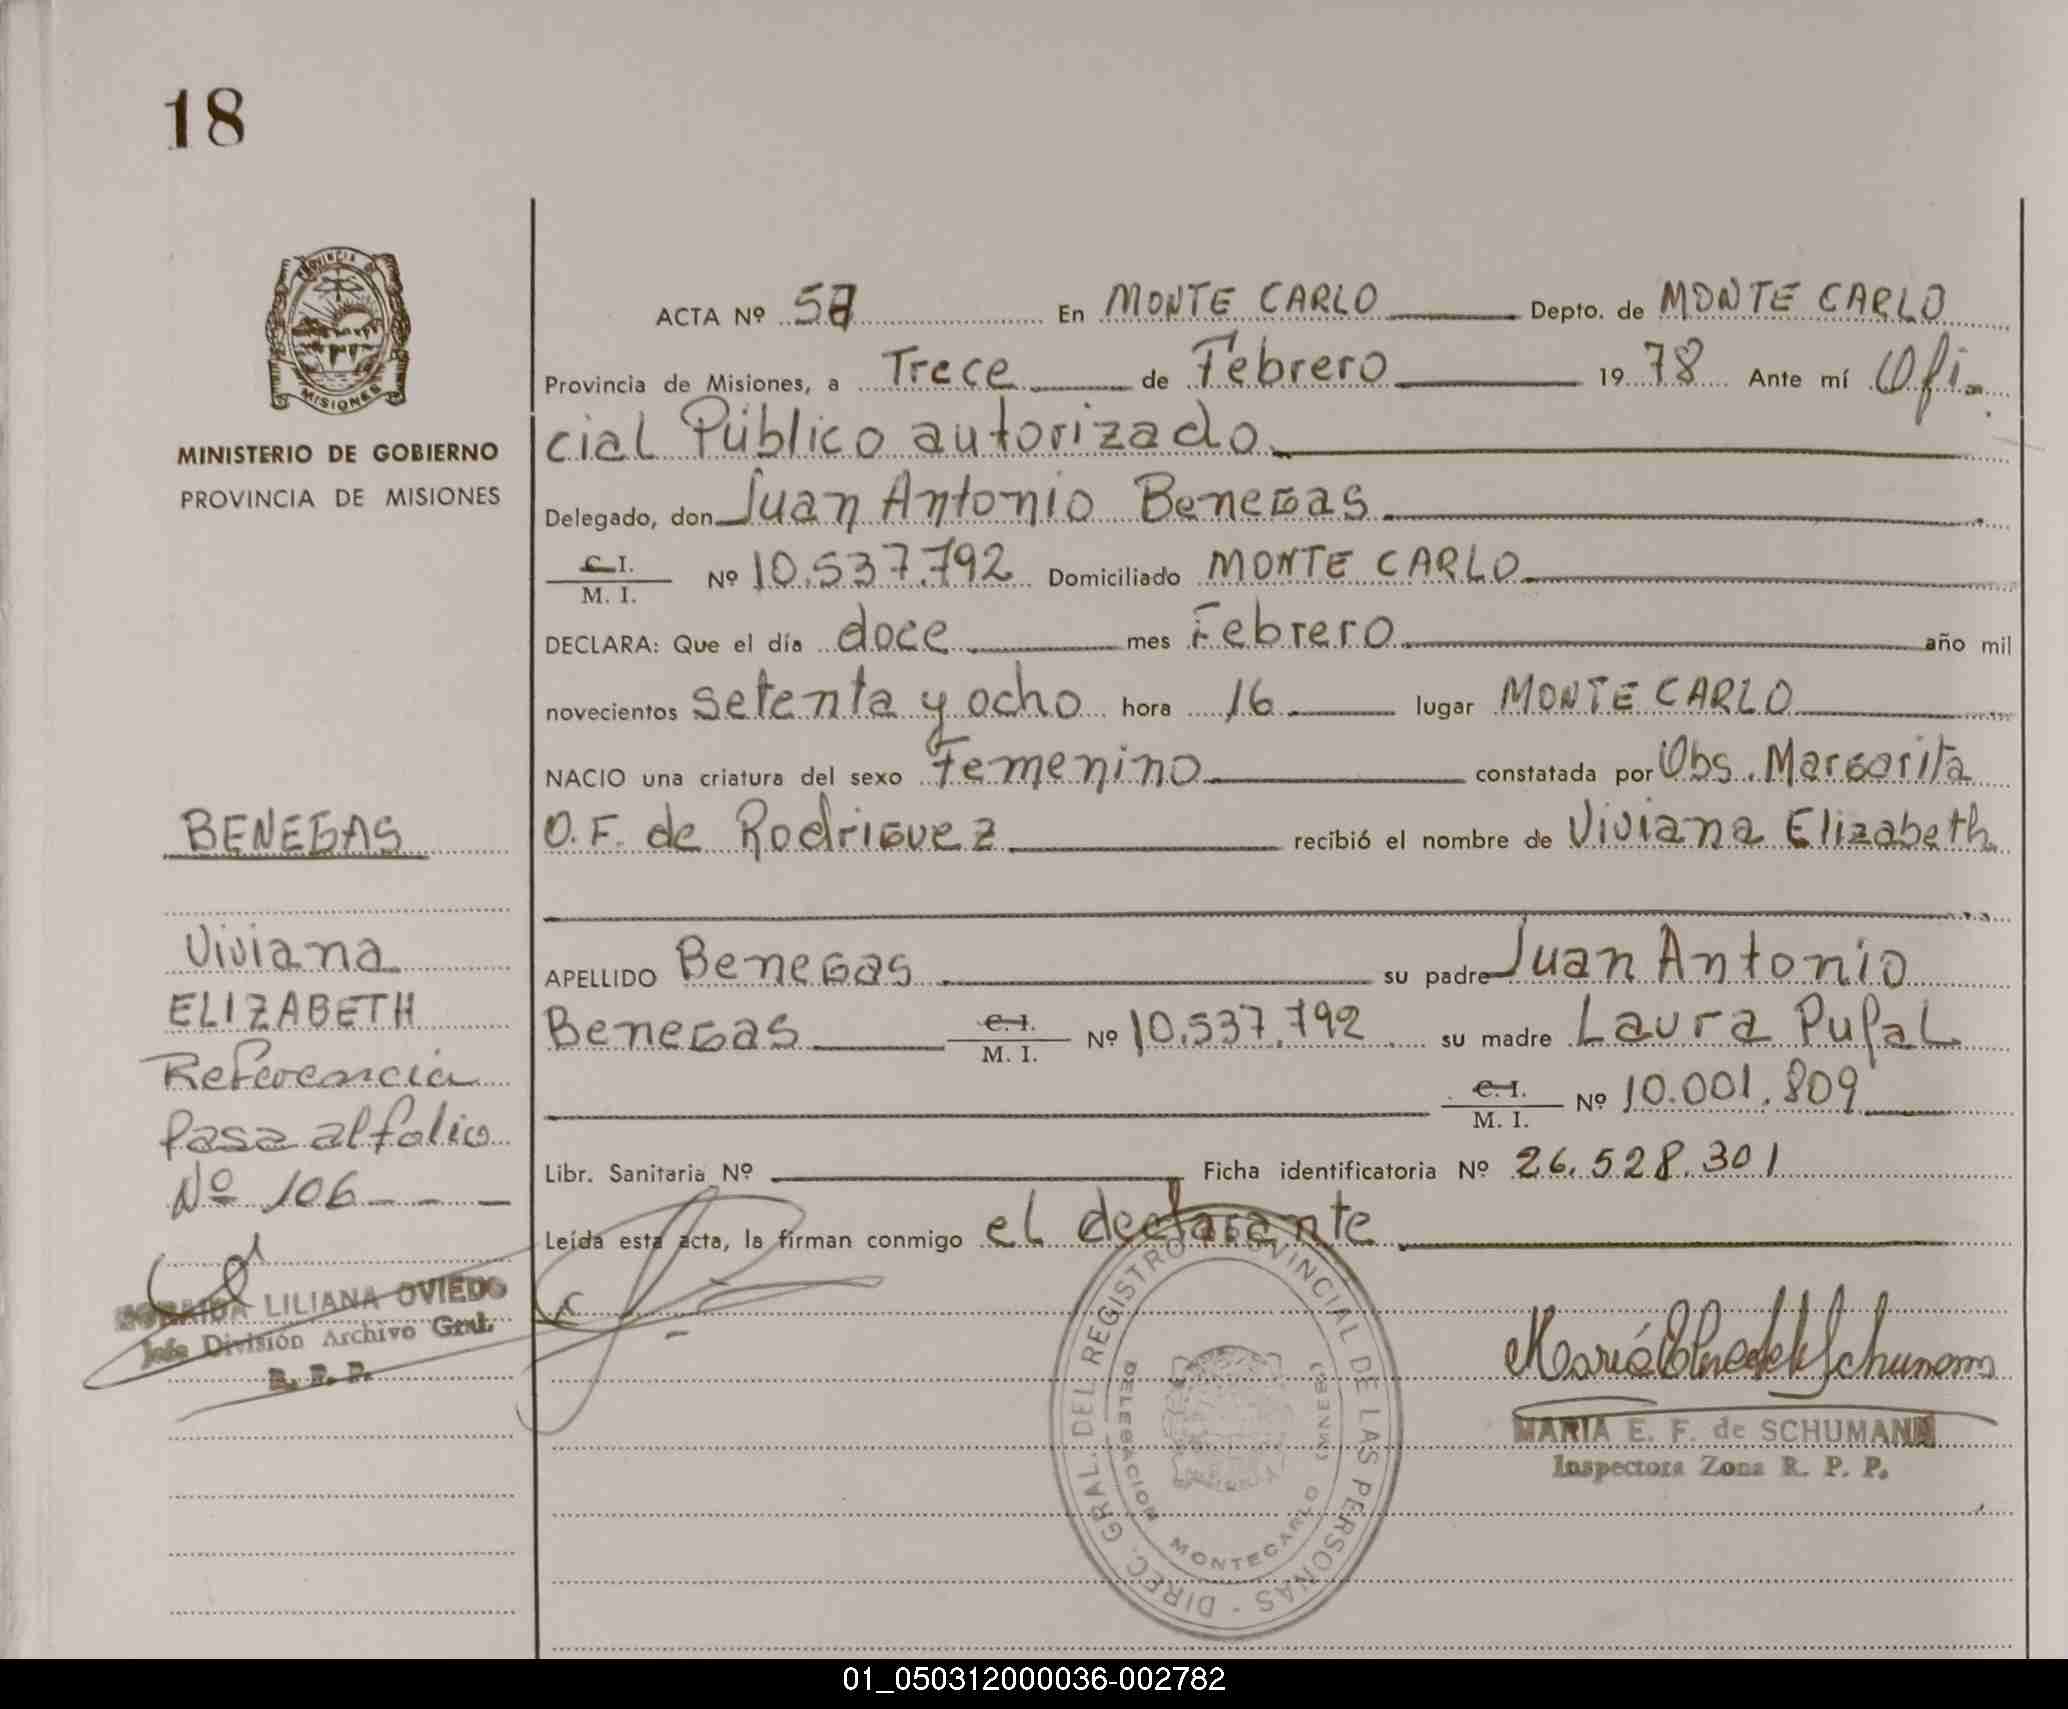 18
PROVINCIA DE
MISIONES
MINISTERIO DE GOBIERNO
PROVINCIA DE MISIONES
ACTA Nº 57 En MONTE CARLO Depto. de MONTE CARLO
Provincia de Misiones, a Trece de Febrero 1978 Ante mí Ofi-
cial Público autorizado
Delegado, don Juan Antonio Benegas
C.I.
M. I. Nº 10.537.792 Domiciliado MONTE CARLO
DECLARA: Que el día doce mes Febrero año mil
novecientos setenta y ocho hora 16 lugar MONTE CARLO
NACIO una criatura del sexo Femenino constatada por Obs. Margarita
O. F. de Rodriguez recibió el nombre de Viviana Elizabeth
APELLIDO Benegas su padre Juan Antonio
Benegas C.I.
M. I. Nº 10.537.792 su madre Laura Pupal
C.I.
M. I. Nº 10.001.809
Libr. Sanitaria Nº Ficha identificatoria Nº 26.528.301
Leída esta acta, la firman conmigo el declarante
BENEGAS
Viviana
ELIZABETH
Referencia
Pasa al folio
Nº 106
LILIANA OVIEDO
Jefe División Archivo Gral.
R. P. P.
DIREC. GRAL. DEL REGISTRO PROVINCIAL DE LAS PERSONAS
DELEGACION MONTECARLO (MNES.)
MARIA E. F. de SCHUMANN
Inspectora Zona R. P. P.
01_050312000036-002782